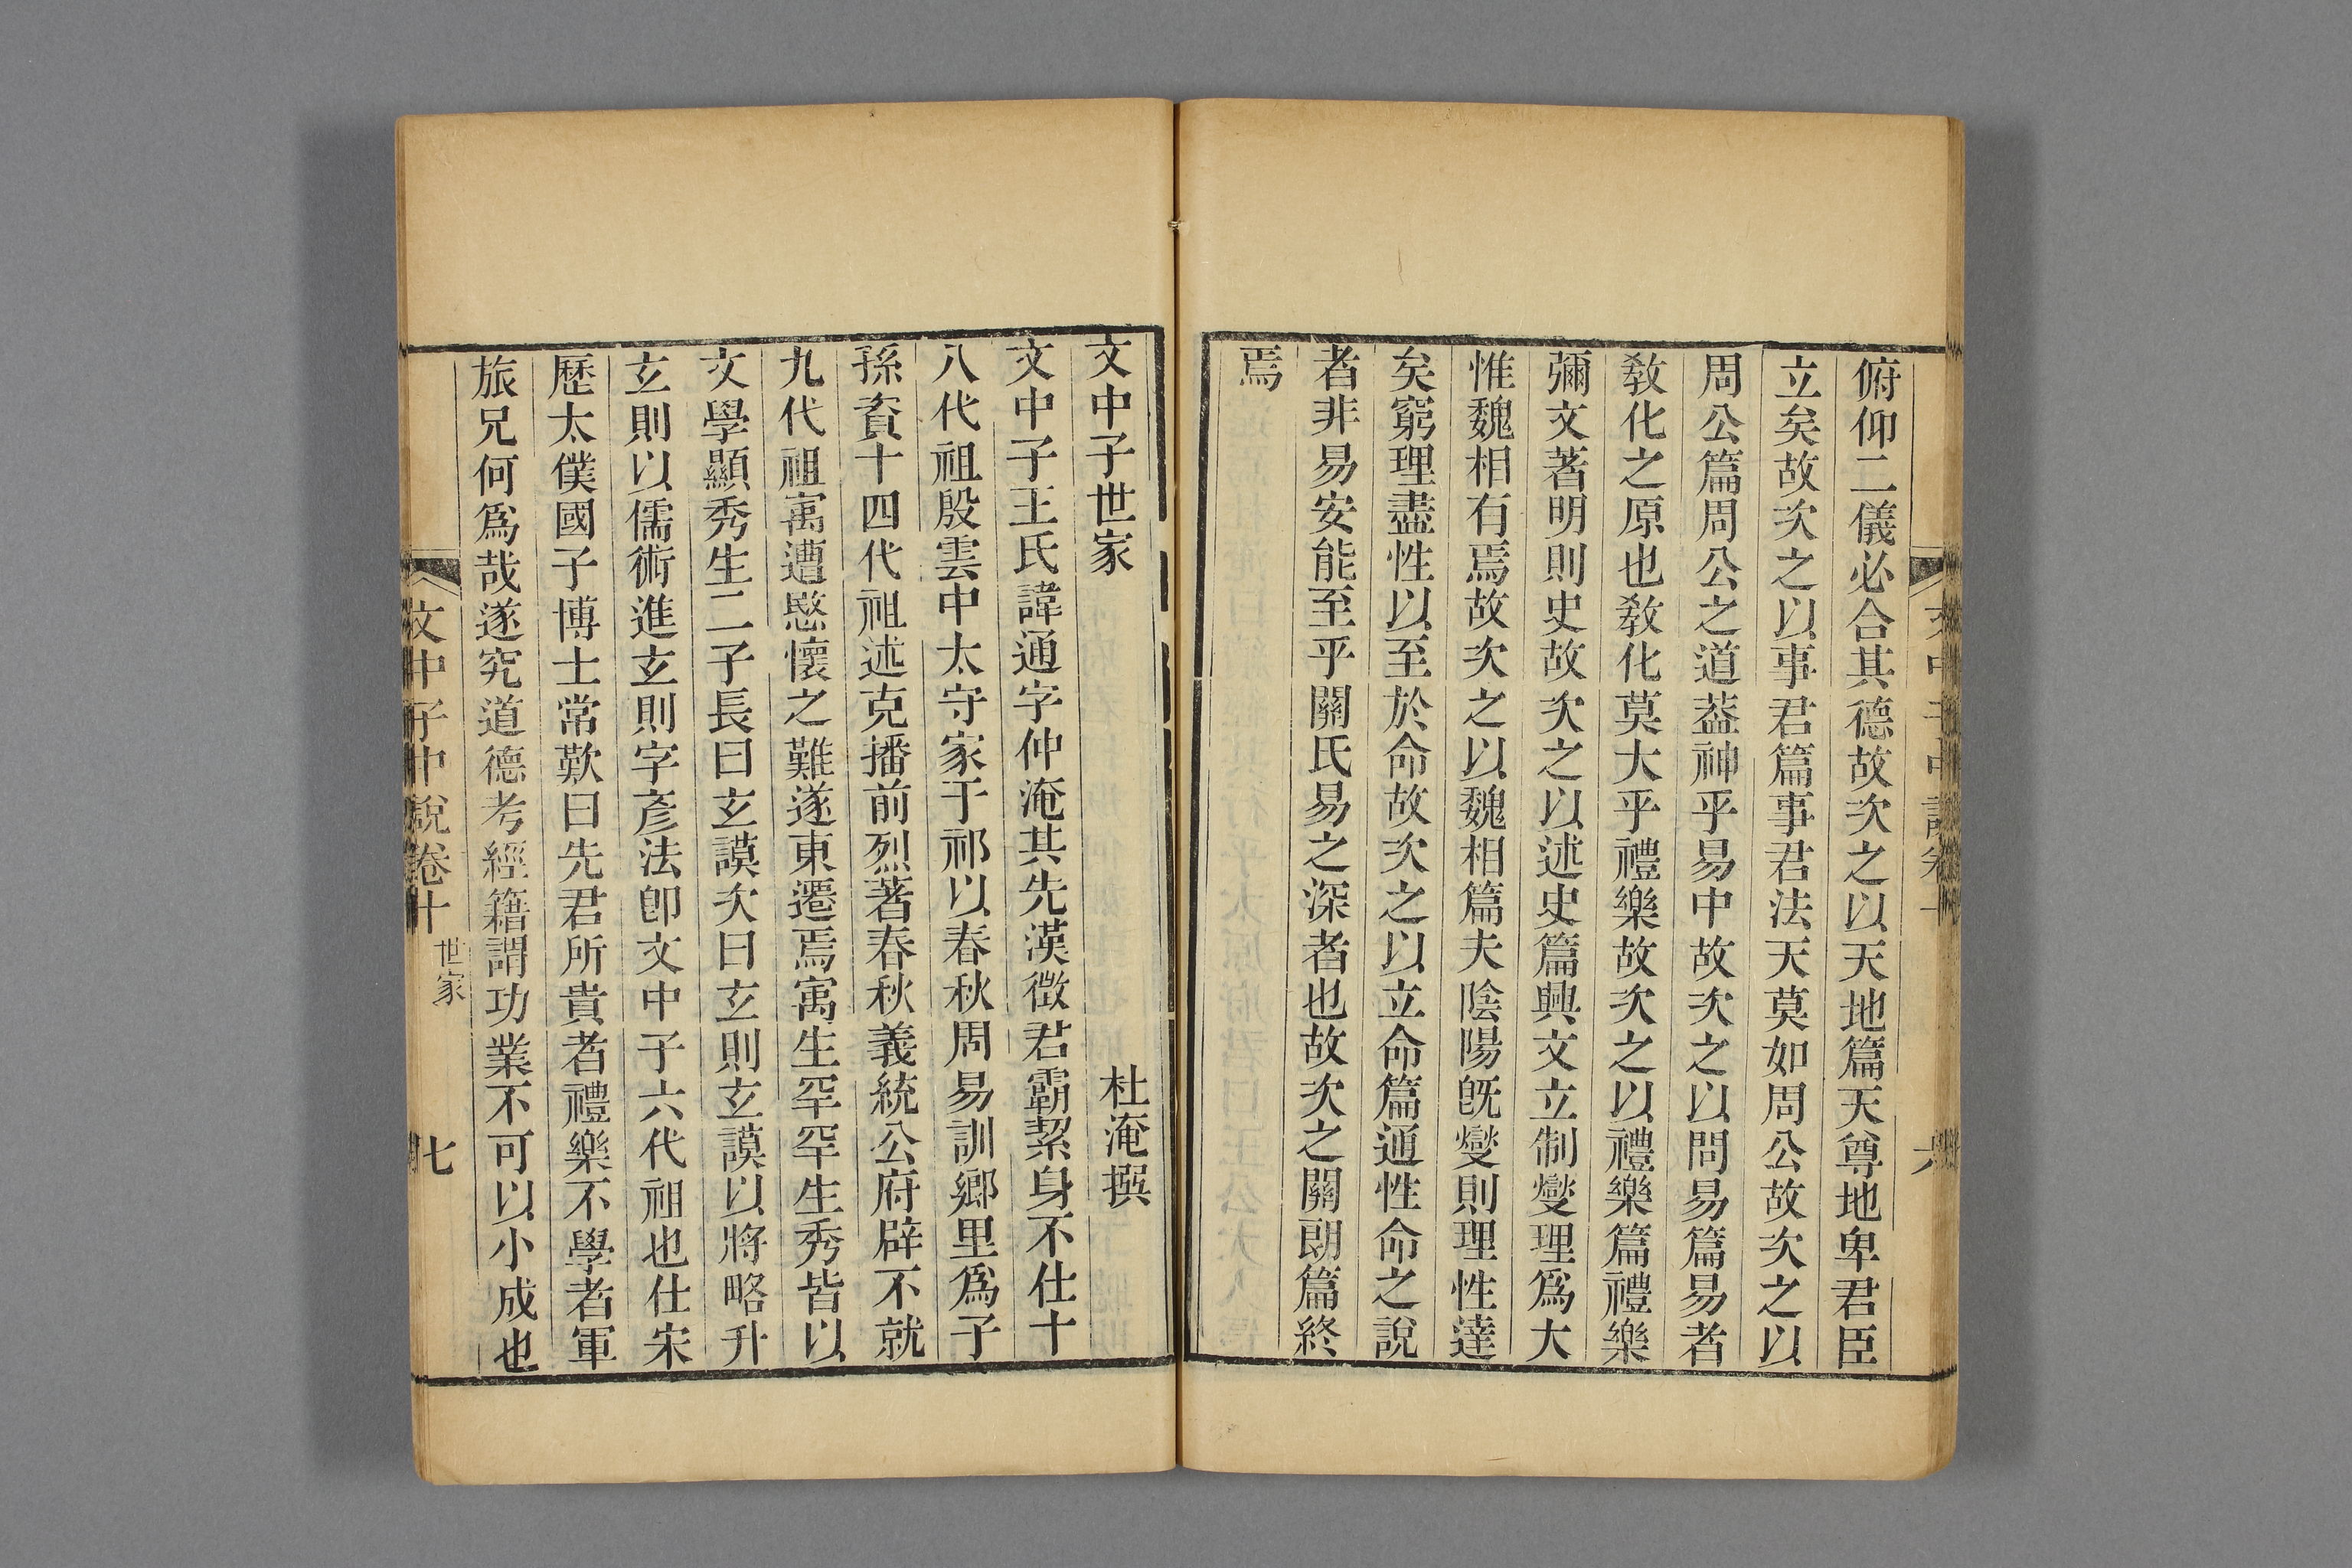 俯仰二儀必合其德故次之以天地篇天尊地卑君臣
立矣故次之以事君篇事君法天莫如周公故次之以
周公篇周公之道葢神乎易中故次之以問易篇易者
敎化之原也敎化莫大乎禮樂故次之以禮樂篇禮樂
彌文著明則史故次之以述史篇興文立制燮理爲大
惟魏相有焉故次之以魏相篇夫陰陽旣燮則理性達
矣窮理盡性以至於命故次之以立命篇通性命之說
者非易安能至乎關氏易之深者也故次之關朗篇終
焉
文中子世家
杜淹撰
文中子王氏諱通字仲淹其先漢徵君霸絜身不仕十
八代祖殷雲中太守家于祁以春秋周易訓鄉里爲子
孫資十四代祖述克播前烈著春秋義統公府辟不就
九代祖寓遭愍懷之難遂東遷焉寓生罕罕生秀皆以
文學顯秀生二子長曰玄謨次曰玄則玄謨以將略升
玄則以儒術進玄則字彥法卽文中子六代祖也仕宋
歷太僕國子博士常歎曰先君所貴者禮樂不學者軍
旅兄何爲哉遂究道德考經籍謂功業不可以小成也
文中子中說卷十 世家 七